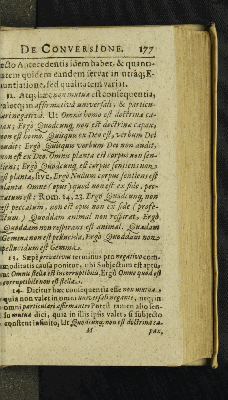 DE CONVERSIONE. 177
ecto Antecedentis idem habet, & quanti-
tatem quidem eandem servat in utraq; E-
nuntiatione, sed qualitatem variat.
12. Atq; hæc non mutua est consequentia,
valetq; in affirmativa universali, & particu-
lari negantiâ. Ut Omnis homo est doctrinæ ca-
pax; Ergò Quodcunq; non est doctrinæ capax,
non est homo. Quicunq; ex Deo est, verbum Dei
audit: Ergò Quicunq; verbum Dei non audit,
non est ex Deo. Omnis planta est corpus non sen-
tiens; Ergò Quodcunq; est corpus sentiens, non
est planta, sive, Ergò Nullum corpus sentiens est
planta. Omne (opus) quod non est ex fide, pec-
catum est: Rom. 14. 23. Ergò Quodcunq; non
est peccatum, non est opus non ex fide (profe-
ctum.) Quoddam animal non respirat, Ergò
Quoddam non respirans est animal. Quædam
Gemma non est pellucida, Ergò Quoddam non-
pellucidum est Gemma.
13. Sæpè privativus terminus pro negativo com-
moditatis causa ponitur, ubi Subjectum est aptum:
ut Omnis stella est incorruptibilis, Ergò Omne quod est
corruptibile non est stella.
14. Dicitur hæc consequentia esse non mutua,
quia non valet in omni universali negante, neq; in
omni particulari affirmante. Potest tamen alio sen-
su mutua dici, quia in illis ipsis valet, si subjecto
constent infinito. Ut Quodcunq; non est doctrinæ ca-
M pax,